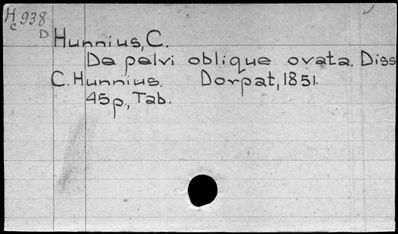 H 938
c
D
Hunnius, C.
De pelvi oblique ovata. Diss
C. Hunnius. Dorpat, 1851.
45p., Tab.